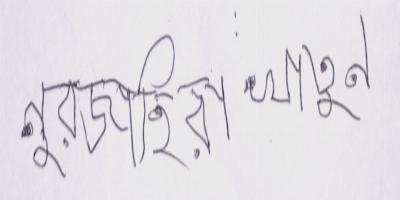 নুরজাহিরা খাতুন